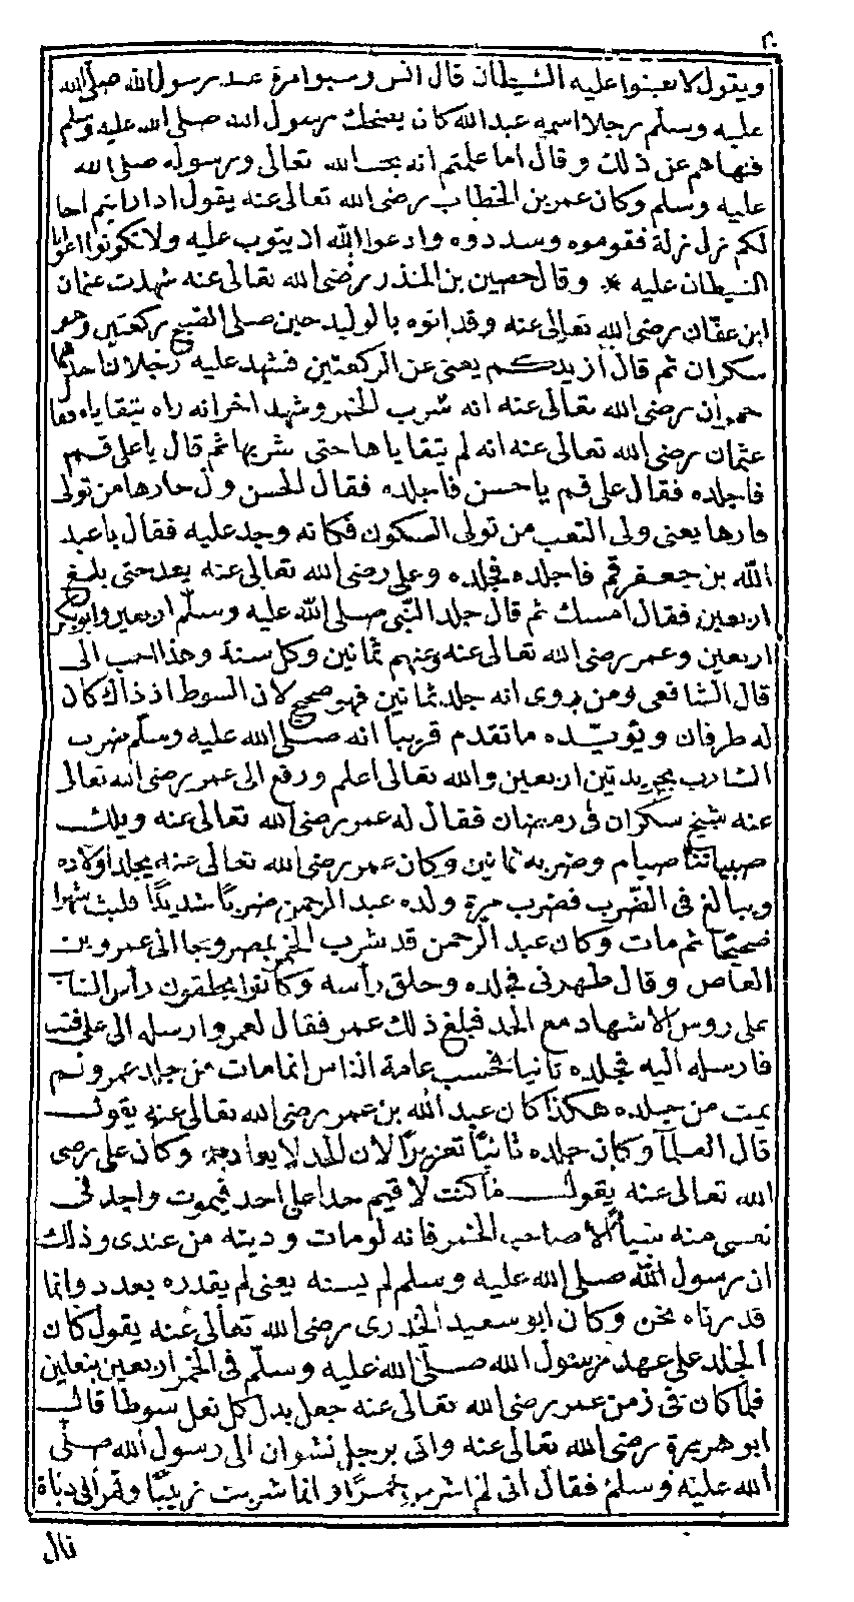 ويقول لا تعينوا عليه الشيطان قال انس وسبوا مرة عند رسول الله صلى الله
عليه وسلم رجلا اسمه عبد الله كان يضحك رسول الله صلى الله عليه وسلم
فنهاهم عن ذلك وقال اما علمتم انه يحب الله تعالى ورسوله صلى الله
عليه وسلم وكان عمر بن الخطاب رضى الله تعالى عنه يقول اذا رايتم اخا
لكم نزل نزلة فقوموه وسددوه وادعوا الله ان يتوب عليه ولا تكونوا اعوانا
الشيطان عليه * وقال حصين بن المنذر رضى الله تعالى عنه شهدت عثمان
ابن عفان رضى الله تعالى عنه وقد اتوه بالوليد حين صلى الصبح ركعتين وهو
سكران ثم قال ازيدكم يعنى عن الركعتين فشهد عليه رجلان احدهما
حمران رضى الله تعالى عنه انه شرب الخمر وشهد اخر انه راه يتقاياه فقا
عثمان رضى الله تعالى عنه انه لم يتقاياها حتى شربها ثم قال يا على قم
فاجلده فقال على قم يا حسن فاجلده فقال الحسن ول حارها من تولى
قارها يعنى ولى التعب من تولى السكون فكانه وجد عليه فقال يا عبد
الله بن جعفر قم فاجلده فجلده وعلى رضى الله تعالى عنه يعد حتى بلغ
اربعين فقال امسك ثم قال جلد النبى صلى الله عليه وسلم اربعين وابو بكر
اربعين وعمر رضى الله تعالى عنه وعنهم ثمانين وكل سنة وهذا احب الى
قال الشافعى ومن روى انه جلد ثمانين فهو صحيح لان السوط اذ ذاك كان
له طرفان ويؤيده ما تقدم قريبا انه صلى الله عليه وسلم ضرب
الشارب بجريدتين اربعين والله تعالى اعلم ورفع الى عمر رضى الله تعالى
عنه شيخ سكران فى رمضان فقال له عمر رضى الله تعالى عنه ويلك
صبياننا صيام وضربه ثمانين وكان عمر رضى الله تعالى عنه يجلد اولاده
ويبالغ فى الضرب فضرب مرة ولده عبد الرحمن ضربا شديدا فلبث شهرا
صحيحا ثم مات وكان عبد الرحمن قد شرب الخمر بمصر وجا الى عمرو بن
العاص وقال طهرنى فجلده وحلق رأسه وكانوا يحلقون رأس الشاب
على روس الاشهاد مع الحد فبلغ ذلك عمر فقال لعمرو ارسله الى على قتب
فارسله اليه فجلده ثانيا فحسب عامة الناس انما مات من جلد عمر ولم
يمت من جلده هكذا كان عبد الله بن عمر رضى الله تعالى عنه يقول
قال العلمآ وكان جلده ثانيا تعزيرا لان الحد لا يعاد وكان على رضى
الله تعالى عنه يقول ما كنت لاقيم حدا على احد فيموت واجد فى
نفسى منه شيأ الا صاحب الخمر فانه لو مات وديته من عندى وذلك
ان رسول الله صلى الله عليه وسلم لم يسنه يعنى لم يقدره بعدد وانما
قدرناه نحن وكان ابو سعيد الخدرى رضى الله تعالى عنه يقول كان
الجلد على عهد رسول الله صلى الله عليه وسلم فى الخمر اربعين بنعلين
فلما كان فى زمن عمر رضى الله تعالى عنه جعل بدل كل نعل سوطا قال
ابو هريرة رضى الله تعالى عنه واتى برجل نشوان الى رسول الله صلى
الله عليه وسلم فقال انى لم اشرب خمرا وانما شربت زبيبا وتمرا فى دباة
قال